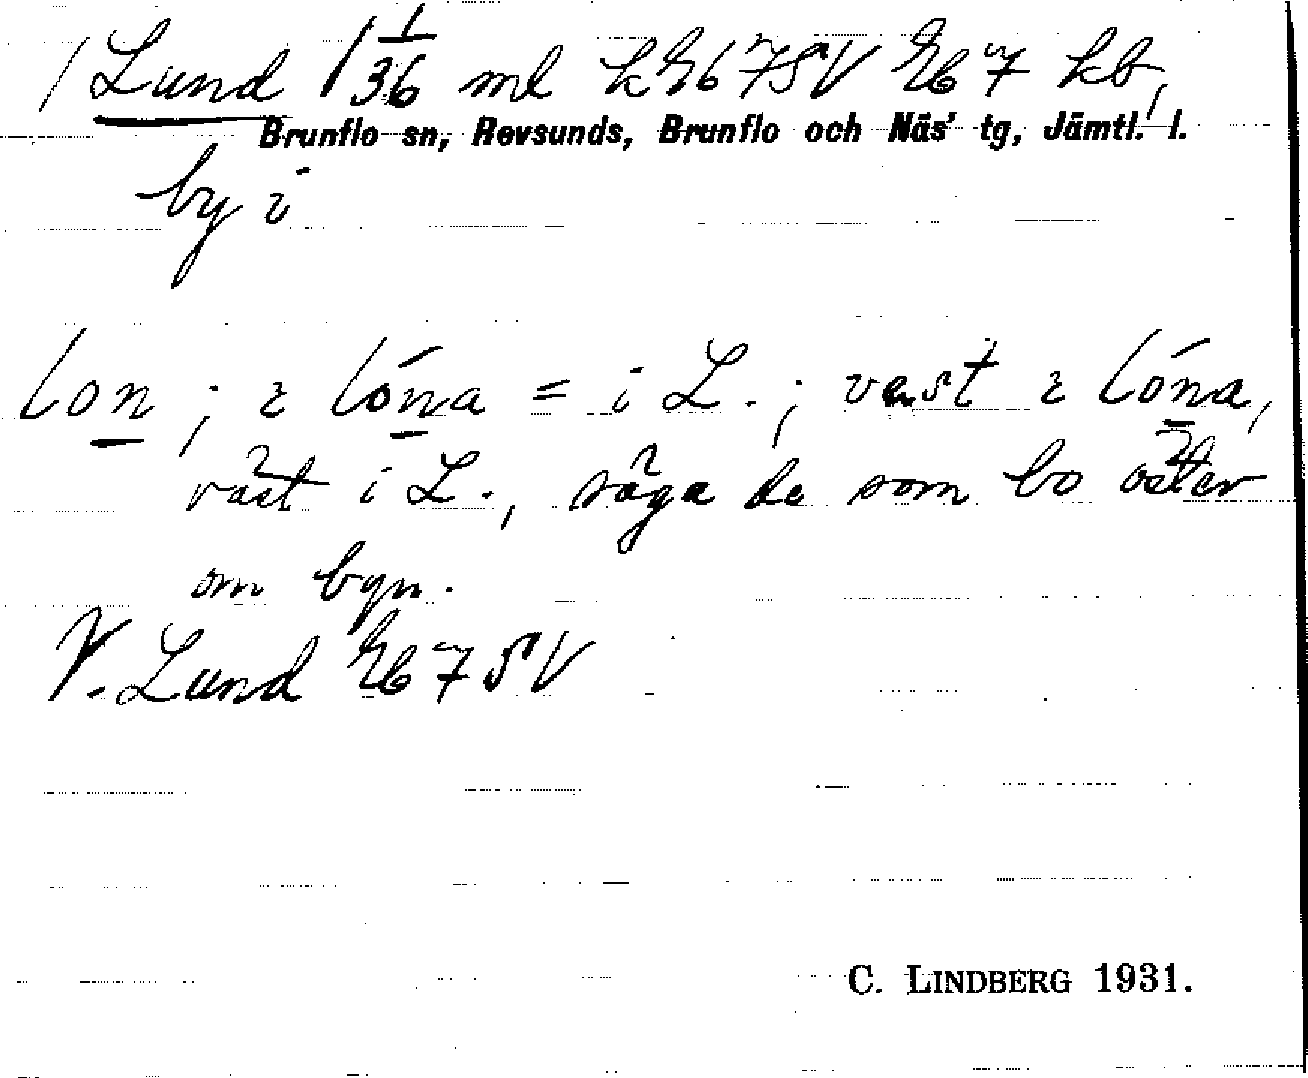 Lund 1 1/36 ml k Eb 7 SV Eb 7 kb,
Brunflo sn, Revsunds, Brunflo och Näs' tg, Jämtl. l.
by i
lon ; ɩ lóna = i L. ; vest ɩ lóna,
väst i L., säga de som bo öster
om byn.
V. Lund Eb 7 SV
C. LINDBERG 1931.